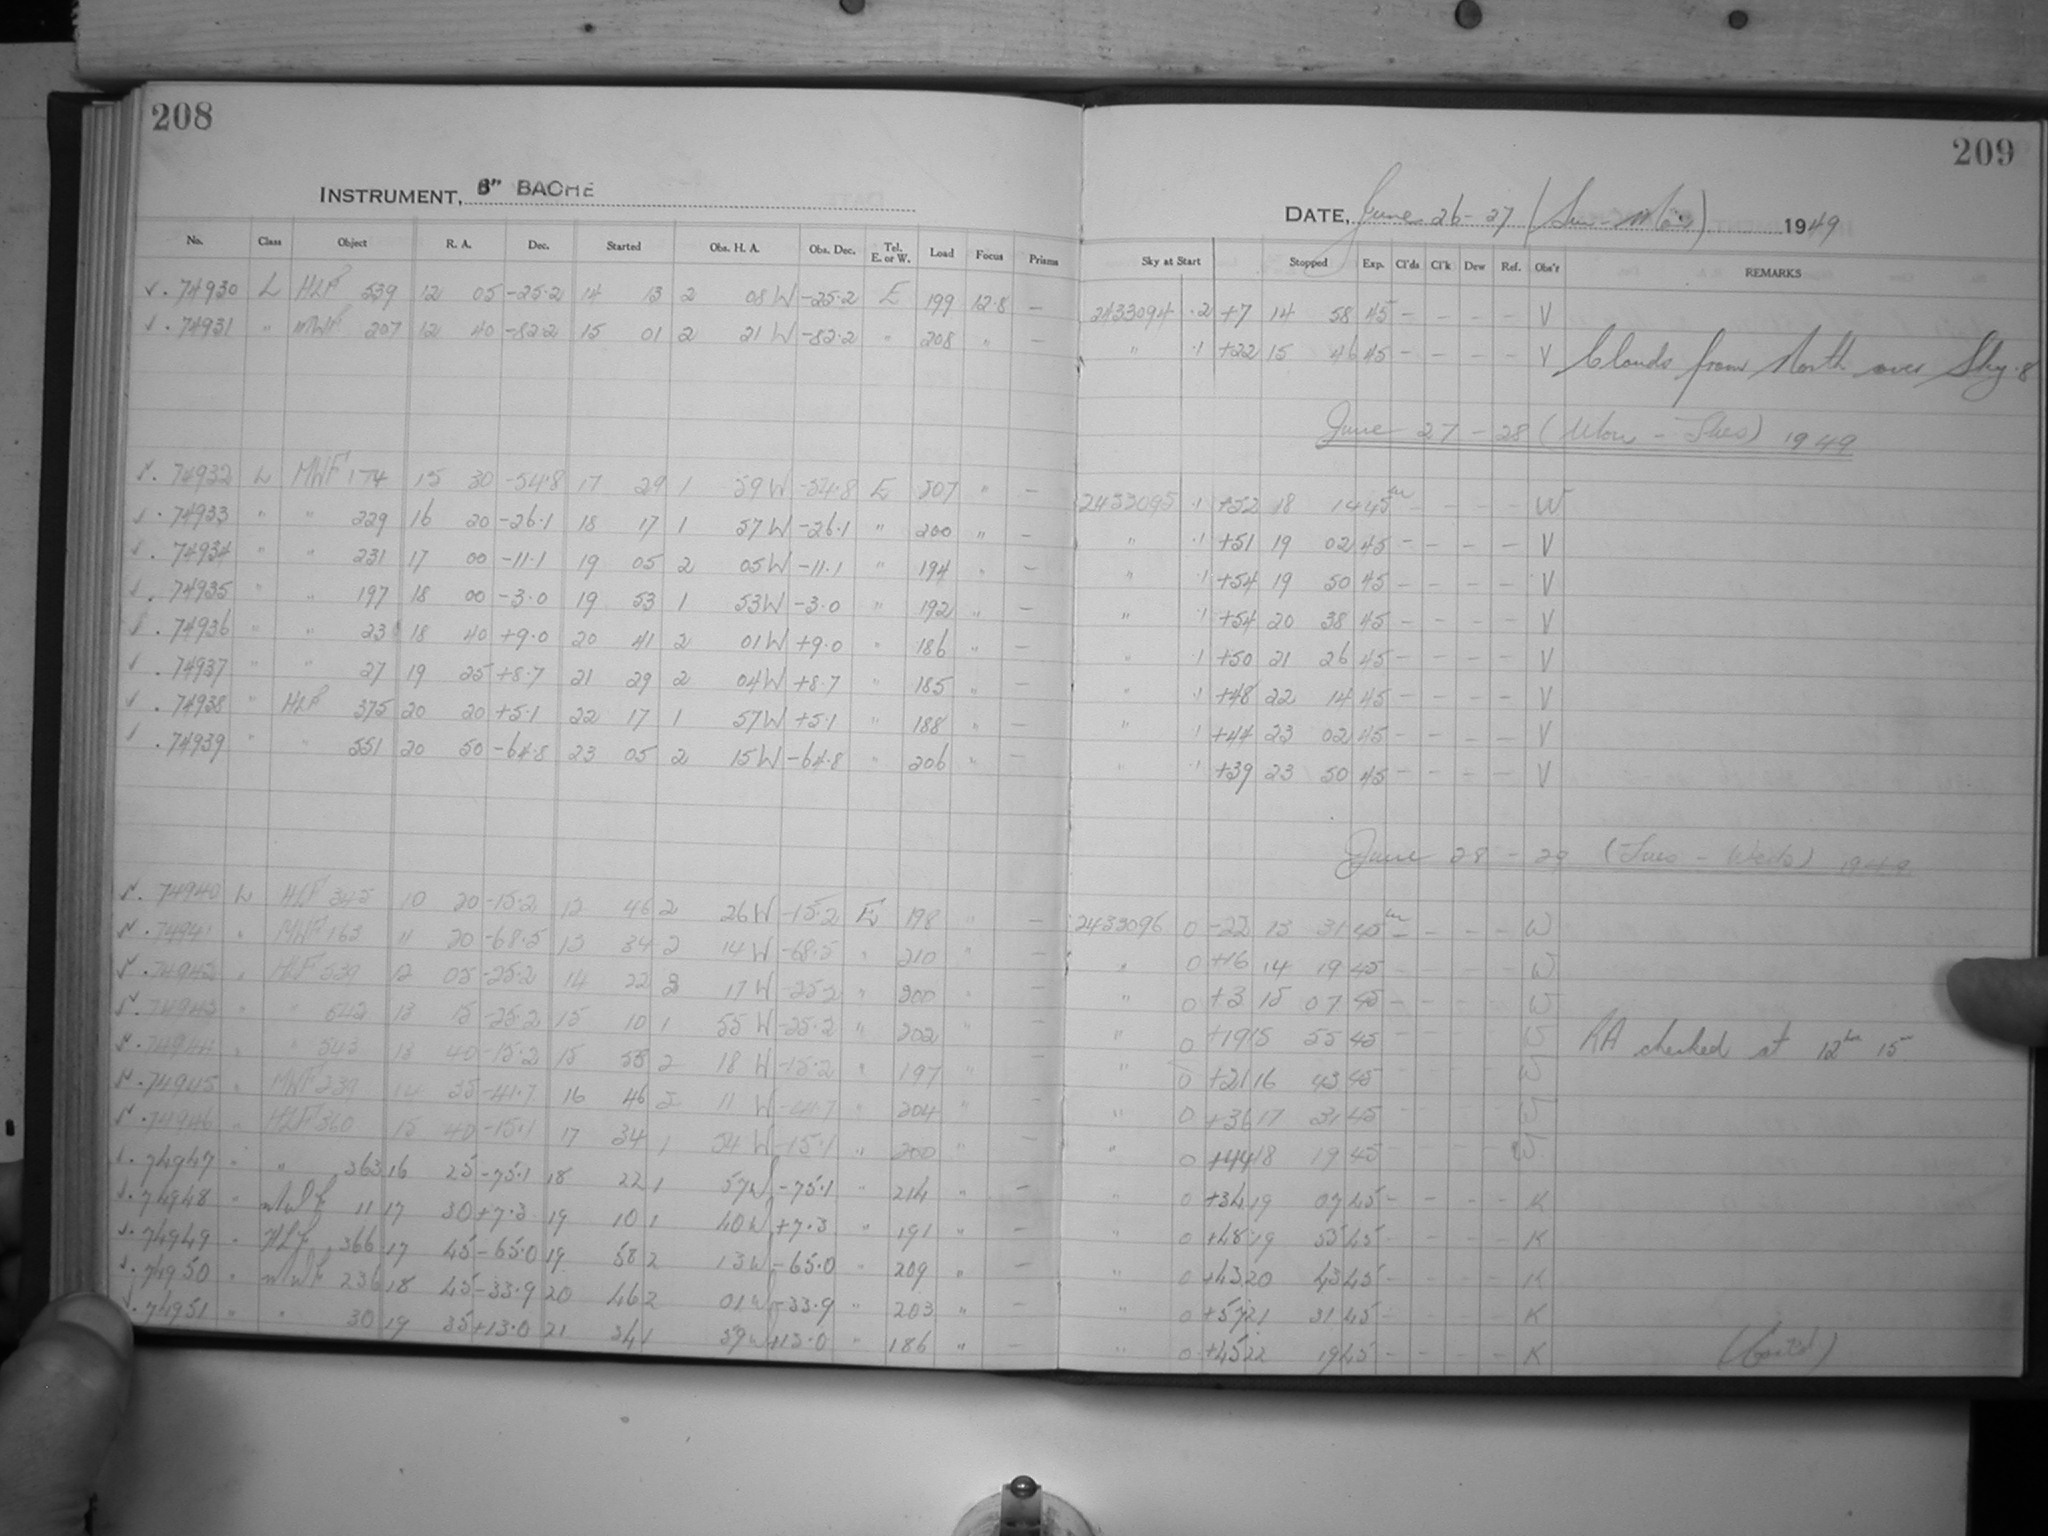 208
INSTRUMENT, 8" BACHE
No. Class Object R. A. Dec. Started Obs. H. A. Obs. Dec. Tel. E. or W. Load Focus Prisms
√ . 74930 L HLF 539 12 05 -25.2 14 13 2 08 W -25.2 E 199 12.8 —
√ . 74931 " MWF 207 12 40 -82.2 15 01 2 21 W -82.2 " 208 " —
√ . 74932 L MWF 174 15 30 -54.8 17 29 1 59 W -54.8 E 207 " —
√ . 74933 " " 229 16 20 -26.1 18 17 1 57 W -26.1 " 200 " —
√ . 74934 " " 231 17 00 -11.1 19 05 2 05 W -11.1 " 194 " —
√ . 74935 " " 197 18 00 -3.0 19 53 1 53 W -3.0 " 192 " —
√ . 74936 " " 23 18 40 +9.0 20 41 2 01 W +9.0 " 186 " —
√ . 74937 " " 27 19 25 +8.7 21 29 2 04 W +8.7 " 185 " —
√ . 74938 " HLF 375 20 20 +5.1 22 17 1 57 W +5.1 " 188 " —
√ . 74939 " " 551 20 50 -64.8 23 05 2 15 W -64.8 " 206 " —
√ . 74940 L HLF 345 10 20 -15.2 12 46 2 26 W -15.2 E 198 " —
√ . 74941 " MWF 163 11 20 -68.5 13 34 2 14 W -68.5 " 210 " —
√ . 74942 " HLF 539 12 05 -25.2 14 22 2 17 W -25.2 " 200 " —
√ . 74943 " " 542 13 15 -25.2 15 10 1 55 W -25.2 " 202 " —
√ . 74944 " " 543 13 40 -15.2 15 58 2 18 W -15.2 " 197 " —
√ . 74945 " MWF 239 14 35 -41.7 16 46 2 11 W -41.7 " 204 " —
√ . 74946 " HLF 360 15 40 -15.1 17 34 1 54 W -15.1 " 200 " —
√ . 74947 " " 363 16 25 -75.1 18 22 1 57 W -75.1 " 214 " —
√ . 74948 " MWF 11 17 30 +7.3 19 10 1 40 W +7.3 " 191 " —
√ . 74949 " HLF 366 17 45 -65.0 19 58 2 13 W -65.0 " 209 " —
√ . 74950 " MWF 236 18 45 -33.9 20 46 2 01 W -33.9 " 203 " —
√ . 74951 " " 30 19 35 +13.0 21 34 1 59 W +13.0 " 186 " —
209
DATE, June 26-27 (Sun-Mon) 1949
Sky at Start Stopped Exp. Cl'ds Cl'k Dew Ref. Obs'r REMARKS
2433094 .2 +7 14 58 45 — — — — V
" .1 +22 15 46 45 — — — — V Clouds from North over Sky .8
June 27 - 28 (Mon - Tues) 1949
2433095 .1 +52 18 14 45m — — — — W
" .1 +51 19 02 45 — — — — V
" .1 +54 19 50 45 — — — — V
" .1 +54 20 38 45 — — — — V
" .1 +50 21 26 45 — — — — V
" .1 +48 22 14 45 — — — — V
" .1 +44 23 02 45 — — — — V
" .1 +39 23 50 45 — — — — V
June 28 - 29 (Tues - Weds) 1949
2433096 0 -22 13 31 45m — — — — W
" 0 +16 14 19 45 — — — — W
" 0 +3 15 07 45 — — — — W
" 0 +19 15 55 45 — — — — W RA checked at 12hrs 15m
" 0 +21 16 43 45 — — — — W
" 0 +36 17 31 45 — — — — W
" 0 +44 18 19 45 — — — — W
" 0 +34 19 07 45 — — — — K
" 0 +48 19 55 45 — — — — K
" 0 +43 20 43 45 — — — — K
" 0 +57 21 31 45 — — — — K
" 0 +45 22 19 45 — — — — K (Cont'd)